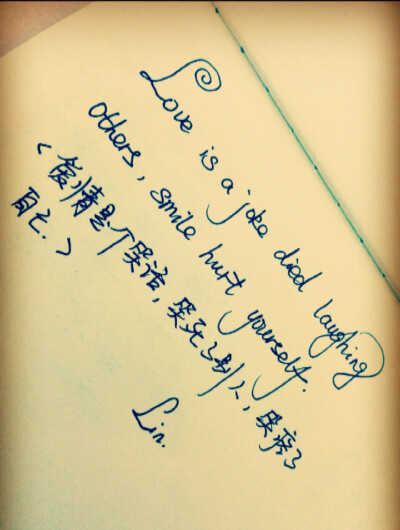 Love is a joke died laughing
others, smile hurt yourself.
(爱情是个笑话,笑死了别人,笑疼了
自己.)
Lin.